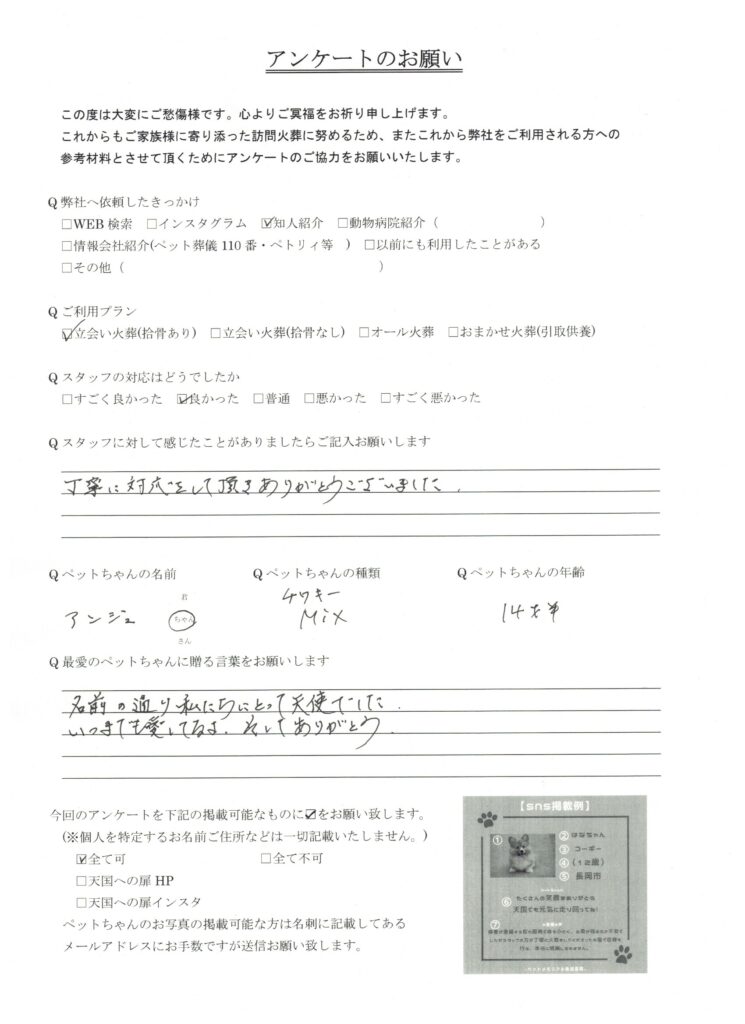 アンケートのお願い
この度は大変にご愁傷様です。心よりご冥福をお祈り申し上げます。
これからもご家族様に寄り添った訪問火葬に努めるため、またこれから弊社をご利用される方への
参考材料とさせて頂くためにアンケートのご協力をお願いいたします。
Q 弊社へ依頼したきっかけ
□WEB 検索 □インスタグラム ☑知人紹介 □動物病院紹介（ ）
□情報会社紹介(ペット葬儀 110 番・ペトリィ等 ) □以前にも利用したことがある
□その他（ ）
Q ご利用プラン
☑立会い火葬(拾骨あり) □立会い火葬(拾骨なし) □オール火葬 □おまかせ火葬(引取供養)
Q スタッフの対応はどうでしたか
□すごく良かった ☑良かった □普通 □悪かった □すごく悪かった
Q スタッフに対して感じたことがありましたらご記入お願いします
丁寧に対応をして頂きありがとうございました.
Q ペットちゃんの名前 Q ペットちゃんの種類 Q ペットちゃんの年齢
君
アンジュ ちゃん
さん
チワキー
Mix
14才半
Q 最愛のペットちゃんに贈る言葉をお願いします
名前の通り私たちにとって天使でした.
いつまでも愛してるよ. そしてありがとう.
今回のアンケートを下記の掲載可能なものに☑をお願い致します。
(※個人を特定するお名前ご住所などは一切記載いたしません。)
☑全て可 □全て不可
□天国への扉 HP
□天国への扉インスタ
ペットちゃんのお写真の掲載可能な方は名刺に記載してある
メールアドレスにお手数ですが送信お願い致します。
【sns掲載例】
①
②はなちゃん
③コーギー
④（12歳）
⑤長岡市
⑥たくさんの笑顔をありがとう
天国でも元気に走り回ってね!
⑦